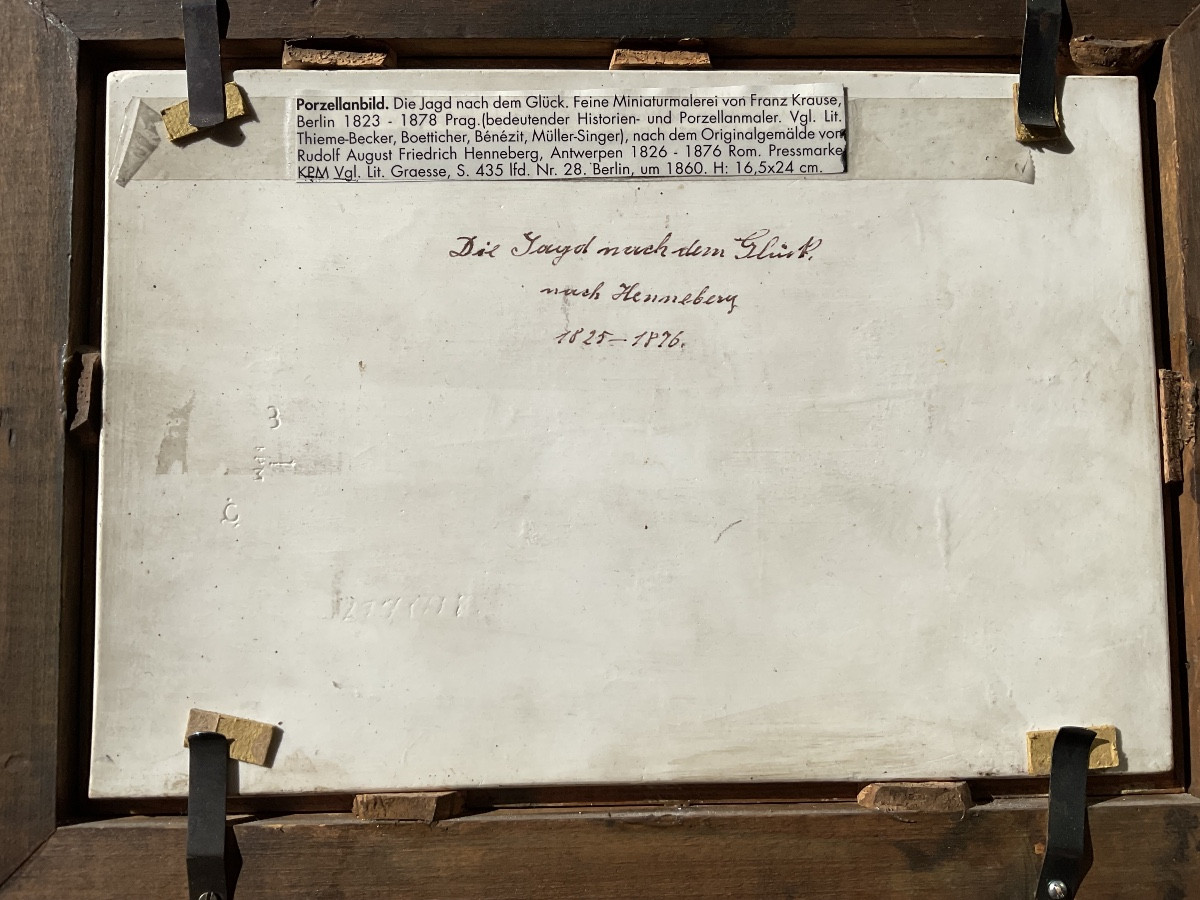 Porzellanbild. Die Jagd nach dem Glück. Feine Miniaturmalerei von Franz Krause,
Berlin 1823 - 1878 Prag.(bedeutender Historien- und Porzellanmaler. Vgl. Lit.
Thieme-Becker, Boetticher, Bénézit, Müller-Singer), nach dem Originalgemälde von
Rudolf August Friedrich Henneberg, Antwerpen 1826 - 1876 Rom. Pressmarke
KPM Vgl. Lit. Graesse, S. 435 lfd. Nr. 28. Berlin, um 1860. H: 16,5x24 cm.
Die Jagd nach dem Glück.
nach Henneberg
1825–1876.
3
C